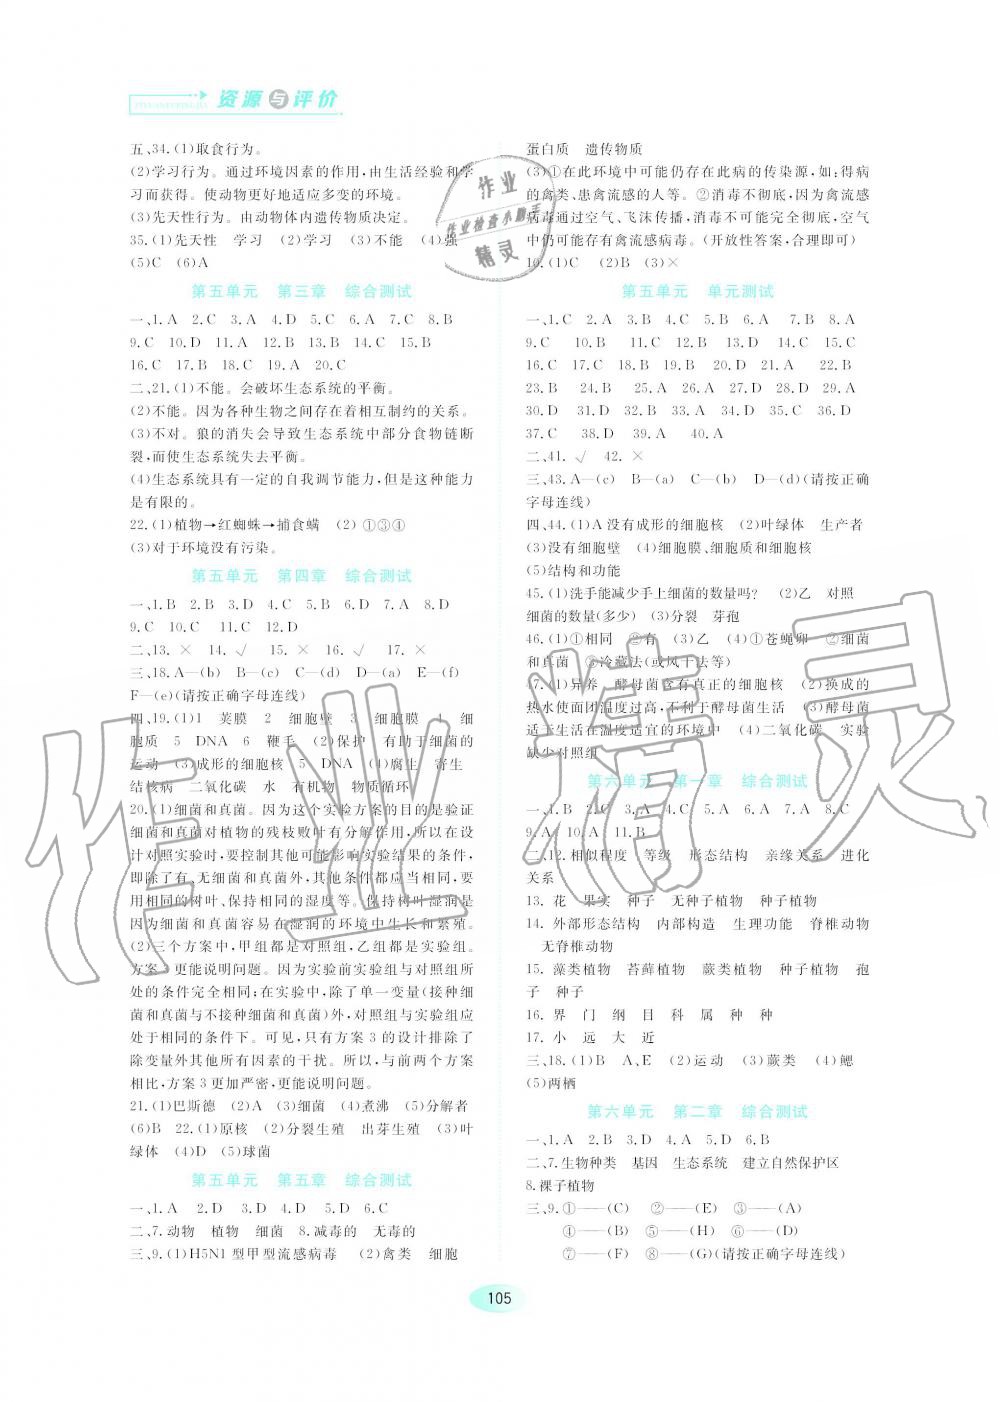 资源与评价
五、34.(1)取食行为。
(2)学习行为。通过环境因素的作用,由生活经验和学
习而获得。使动物更好地适应多变的环境。
(3)先天性行为。由动物体内遗传物质决定。
35.(1)先天性 学习 (2)学习 (3)不能 (4)强
(5)C (6)A
第五单元 第三章 综合测试
一、1.A 2.C 3.A 4.D 5.C 6.A 7.C 8.B
9.C 10.D 11.A 12.B 13.B 14.C 15.B
16.C 17.B 18.C 19.A 20.C
二、21.(1)不能。会破坏生态系统的平衡。
(2)不能。因为各种生物之间存在着相互制约的关系。
(3)不对。狼的消失会导致生态系统中部分食物链断
裂,而使生态系统失去平衡。
(4)生态系统具有一定的自我调节能力,但是这种能力
是有限的。
22.(1)植物→红蜘蛛→捕食螨 (2)①③④
(3)对于环境没有污染。
第五单元 第四章 综合测试
一、1.B 2.B 3.D 4.C 5.B 6.D 7.A 8.D
9.C 10.C 11.C 12.D
二、13.× 14.√ 15.× 16.√ 17.×
三、18.A—(b) B—(c) C—(a) D—(d) E—(f)
F—(e)(请按正确字母连线)
四、19.(1)1 荚膜 2 细胞壁 3 细胞膜 4 细
胞质 5 DNA 6 鞭毛 (2)保护 有助于细菌的
运动 (3)成形的细胞核 5 DNA (4)腐生 寄生
结核病 二氧化碳 水 有机物 物质循环
20.(1)细菌和真菌。因为这个实验方案的目的是验证
细菌和真菌对植物的残枝败叶有分解作用,所以在设
计对照实验时,要控制其他可能影响实验结果的条件,
即除了有、无细菌和真菌外,其他条件都应当相同,要
用相同的树叶、保持相同的湿度等。保持树叶湿润是
因为细菌和真菌容易在湿润的环境中生长和繁殖。
(2)三个方案中,甲组都是对照组,乙组都是实验组。
方案3更能说明问题。因为实验前实验组与对照组所
处的条件完全相同;在实验中,除了单一变量(接种细
菌和真菌与不接种细菌和真菌)外,对照组与实验组应
处于相同的条件下。可见,只有方案3的设计排除了
除变量外其他所有因素的干扰。所以,与前两个方案
相比,方案3更加严密,更能说明问题。
21.(1)巴斯德 (2)A (3)细菌 (4)煮沸 (5)分解者
(6)B 22.(1)原核 (2)分裂生殖 出芽生殖 (3)叶
绿体 (4)D (5)球菌
第五单元 第五章 综合测试
一、1.A 2.D 3.D 4.D 5.D 6.C
二、7.动物 植物 细菌 8.减毒的 无毒的
三、9.(1)H5N1型甲型流感病毒 (2)禽类 细胞
蛋白质 遗传物质
(3)①在此环境中可能仍存在此病的传染源,如:得病
的禽类、患禽流感的人等。②消毒不彻底,因为禽流感
病毒通过空气、飞沫传播,消毒不可能完全彻底,空气
中仍可能存有禽流感病毒。(开放性答案,合理即可)
10.(1)C (2)B (3)×
第五单元 单元测试
一、1.C 2.A 3.B 4.C 5.B 6.A 7.B 8.A
9.C 10.B 11.C 12.C 13.C 14.C 15.C
16.C 17.C 18.B 19.D 20.C 21.A 22.B
23.B 24.B 25.A 26.A 27.D 28.D 29.A
30.D 31.D 32.B 33.C 34.B 35.C 36.D
37.C 38.C 39.A 40.A
二、41.√ 42.×
三、43.A—(c) B—(a) C—(b) D—(d)(请按正确
字母连线)
四、44.(1)A没有成形的细胞核 (2)叶绿体 生产者
(3)没有细胞壁 (4)细胞膜、细胞质和细胞核
(5)结构和功能
45.(1)洗手能减少手上细菌的数量吗? (2)乙 对照
细菌的数量(多少) (3)分裂 芽孢
46.(1)①相同 ②有 (3)乙 (4)①苍蝇卵 ②细菌
和真菌 ③冷藏法(或风干法等)
47.(1)异养 酵母菌含有真正的细胞核 (2)换成的
热水使面团温度过高,不利于酵母菌生活 (3)酵母菌
适于生活在温度适宜的环境中 (4)二氧化碳 实验
缺少对照组
第六单元 第一章 综合测试
一、1.B 2.C 3.A 4.C 5.D 6.A 7.A 8.C
9.A 10.A 11.B
二、12.相似程度 等级 形态结构 亲缘关系 进化
关系
13.花 果实 种子 无种子植物 种子植物
14.外部形态结构 内部构造 生理功能 脊椎动物
无脊椎动物
15.藻类植物 苔藓植物 蕨类植物 种子植物 孢
子 种子
16.界 门 纲 目 科 属 种 种
17.小 远 大 近
三、18.(1)B A、E (2)运动 (3)蕨类 (4)鳃
(5)两栖
第六单元 第二章 综合测试
一、1.A 2.B 3.D 4.A 5.D 6.B
二、7.生物种类 基因 生态系统 建立自然保护区
8.裸子植物
三、9.①——(C) ②——(E) ③——(A)
④——(B) ⑤——(H) ⑥——(D)
⑦——(F) ⑧——(G)(请按正确字母连线)
105
作业
作业检查小助手
精灵
作业精灵